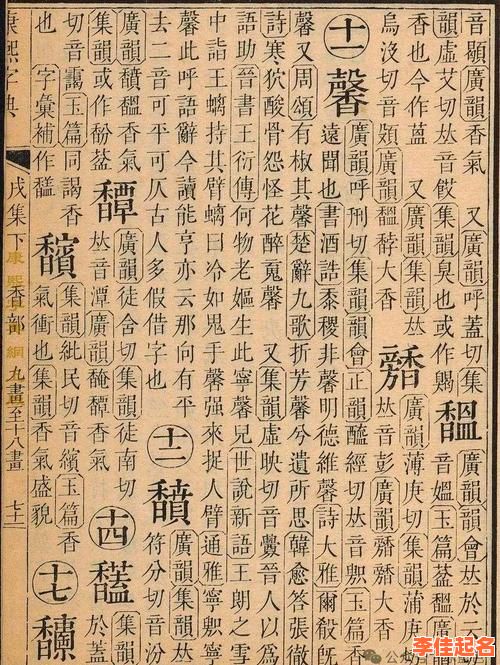 音顯廣韻香氣　又廣韻呼蓋切集
韻虛艾切𠀤音餀集韻臭也或作餲
馧
廣韻韻會𠀤於云
香也今作藹　又廣韻集韻𠀤
烏沒切音頞廣韻馧馞大香
廣韻薄庚切集韻蒲庚
𠀤音彭廣韻大香
十一
馨
廣韻呼刑切集韻韻會正韻醯經切𠀤音玉篇香
遠聞也書酒誥黍稷非馨明德維馨詩大雅爾殽旣
馨又周頌有椒其馨楚辭九歌折芳馨兮遺所思韓愈答張徹
詩寒狄酸骨怨怪花醉䰟馨　又集韻虛映切音晉人以爲
語助晉書王衍傳何物老嫗生此寧馨兒世說新語王朗之雪
中詣王螭持其臂螭曰冷如鬼手馨强來捉人臂通雅寧馨寧
馨此呼語辭今讀能亨亦云那向有平
去二音可平可仄古人多假借字也
十二
馩
廣韻集韻𠀤
符分切音
廣韻馩馧香氣
集韻或作馚
廣韻徒含切集韻徒南切
𠀤音潭廣韻馣香氣
十四
廣韻集韻𠀤
於蓋
切音靄玉篇同香
也　字彙補作
馪
集韻紕民切音繽玉篇香
氣衝也集韻香氣盛貌
十七
康熙字典
戌集下
香部
九畫至十八畫
七十二
李佳起名